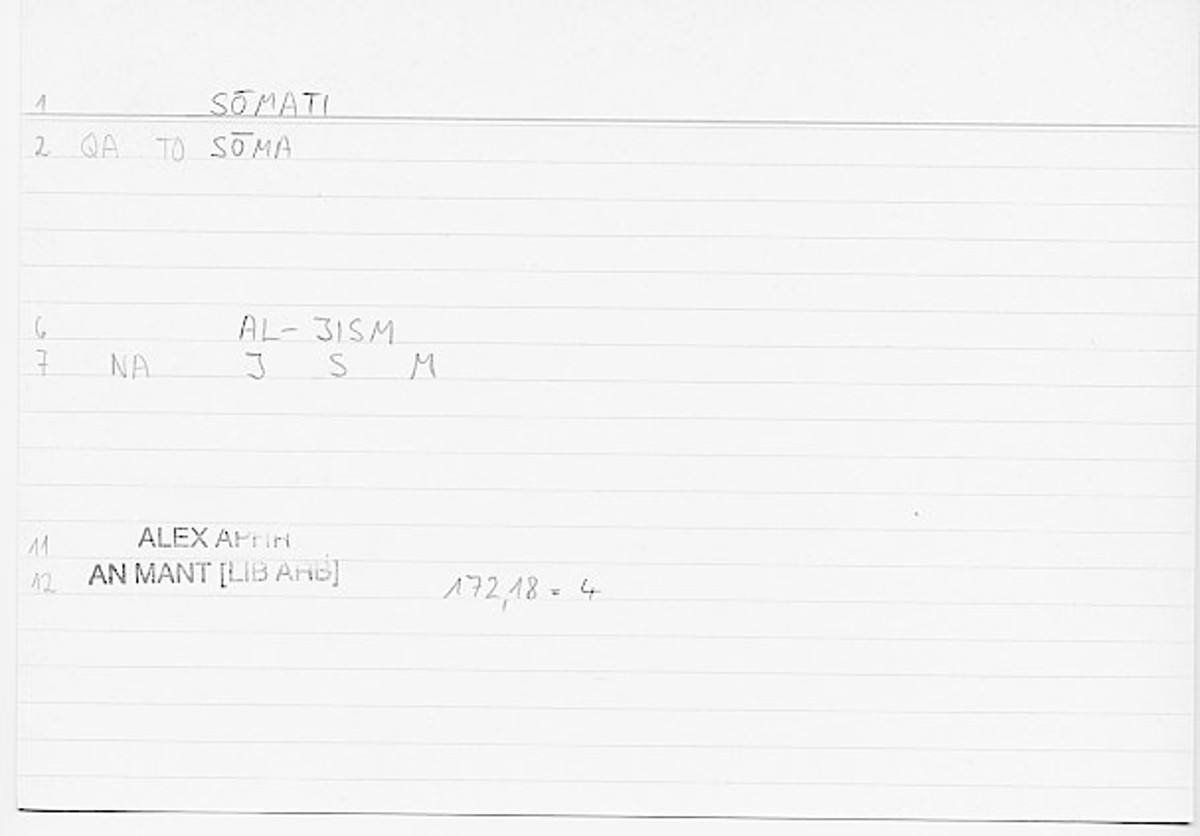 1 SŌMATI
2 QA TO SŌMA
6 AL- JISM
7 NA J S M
11 ALEX APHR
12 AN MANT [LIB ARB] 172,18 = 4